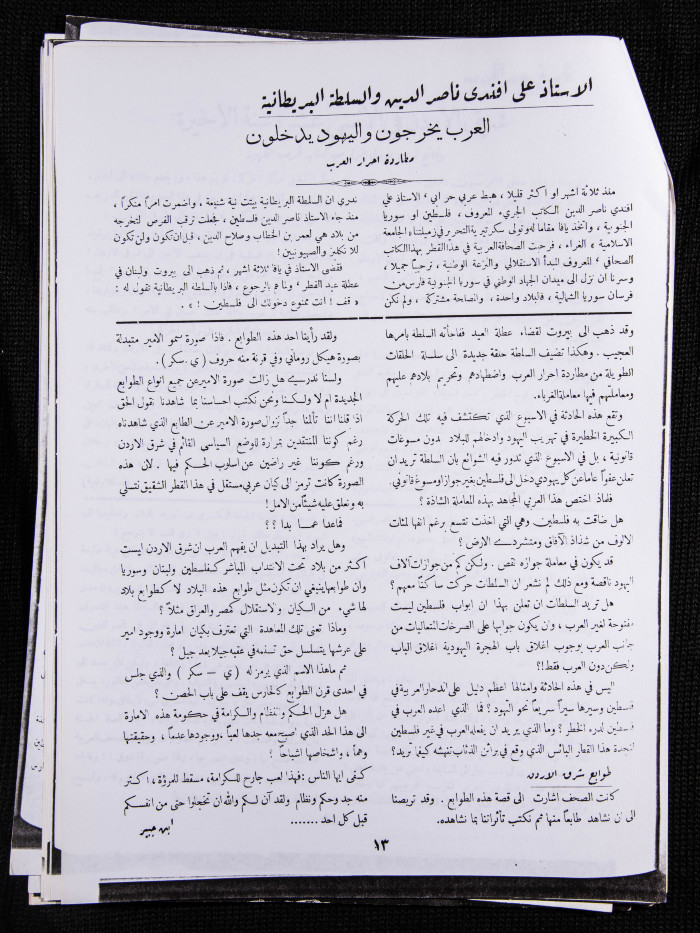 الاستاذ على افندى ناصر الدين والسلطة البريطانية
العرب يخرجون واليهود يدخلون
مطاردة احرار العرب
منذ ثلاثة اشهر او اكثر قليلا ، هبط عربي حر ابي ، الاستاذ علي
افندي ناصر الدين الكاتب الجريء المعروف ، فلسطين او سوريا
الجنوبية ، واتخذ يافا مقاما له وتولى سكرتيرية التحرير في زميلتنا «الجامعة
الاسلامية » الغراء ، فرحبت الصحافة العربية في هذا القطر بهذا الكاتب
الصحافي ، المعروف المبدأ الاستقلالي والنزعة الوطنية ، ترحيباً جميلا ،
وسرنا ان نزل الى ميدان الجهاد الوطني في سوريا الجنوبية فارس من
فرسان سوريا الشمالية ، فالبلاد واحدة ، والمصلحة مشتركة ، ولم نكن
ندري ان السلطة البريطانية بيتت نية شنيعة ، واضمرت امراً منكراً ،
منذ جاء الاستاذ ناصر الدين فلسطين ، فجعلت ترقب الفرص لتخرجه
من بلاد هي لعمر بن الخطاب وصلاح الدين ، قبل ان تكون ولن تكون
للانكليز والصهيونيين !
فقضى الاستاذ في يافا ثلاثة اشهر ، ثم ذهب الى بيروت ولبنان في
عطلة عيد الفطر ، وهم بالرجوع ، فاذا بالسلطة البريطانية تقول له :
« قف ! انت ممنوع دخولك الى فلسطين ! » .
وقد ذهب الى بيروت لقضاء عطلة العيد ففاجأته السلطة بامرها
العجيب . وهكذا تضيف السلطة حلقة جديدة الى سلسلة الحلقات
الطويلة من مطاردة احرار العرب واضطهادهم وتحريم بلادهم عليهم
ومعاملتهم فيها معاملة الغرباء.
وتقع هذه الحادثة في الاسبوع الذي تكتشف فيه تلك الحركة
الكبيرة الخطيرة في تهريب اليهود وادخالهم للبلاد بدون مسوغات
قانونية ، بل في الاسبوع الذي تدور فيه الشوائع بان السلطة تريد ان
تعلن عفواً عاما عن كل يهودي دخل الى فلسطين بغير جواز او مسوغ قانوني .
فلماذا اختص هذا العربي المجاهد بهذه المعاملة الشاذة ؟
هل ضاقت به فلسطين وهي التي اخذت تتسع برغم انفها لمئات
الالوف من شذاذ الآفاق ومتشردي الارض ؟
قد يكون في معاملة جوازه نقص . ولكن كم من جوازات آلاف
اليهود ناقصة ومع ذلك لم نشعر ان السلطات حركت ساكناً معهم ؟
هل تريد السلطات ان تعلن بهذا ان ابواب فلسطين ليست
مفتوحة لغير العرب ، وان يكون جوابها على الصرخات المتعاليات من
جانب العرب بوجوب اغلاق باب الهجرة اليهودية اغلاق الباب
ولكن دون العرب فقط !؟
اليس في هذه الحادثة وامثالها اعظم دليل على اندحار العربية في
فلسطين وسيرها سيراً سريعاً نحو اليهود ؟ فما الذي اعده العرب في
فلسطين لدرء الخطر ؟ وما الذي يريد ان يفعله العرب في غير فلسطين
لنجدة هذا القطار البائس الذي وقع في براثن الذئاب تنهشه كيفما تريد ؟
طوابع شرق الاردن
كانت الصحف اشارت الى قصة هذه الطوابع . وقد تربصنا
الى ان نشاهد طابعاً منها ثم نكتب تأثراتنا بما نشاهده.
ولقد رأينا احد هذه الطوابع . فاذا صورة سمو الامير متبدلة
بصورة هيكل روماني وفي قرنة منه حروف ( ي . سكر ) .
ولسنا ندري هل زالت صورة الامير عن جميع انواع الطوابع
الجديدة ام لا ولكنا ونحن نكتب احساسنا بما شاهدنا نقول الحق
اذا قلنا اننا تألمنا جداً لزوال صورة الامير عن الطابع الذي شاهدناه
رغم كوننا المنتقدين بمرارة للوضع السياسي القائم في شرق الاردن
ورغم كوننا غير راضين عن اسلوب الحكم فيها . لان هذه
الصورة كانت ترمز الى كيان عربي مستقل في هذا القطر الشقيق نتسلى
به ونعلق عليه شيئاً من الامل !
فماعدا عما بدا ؟ ؟
وهل يراد بهذا التبديل ان يفهم العرب ان شرق الاردن ليست
اكثر من بلاد تحت الانتداب المباشر كفلسطين ولبنان وسوريا
وان طوابعها ينبغي ان تكون مثل طوابع هذه البلاد لا كطوابع بلاد
لها شيء من الكيان والاستقلال كمصر والعراق مثلاً ؟
وماذا تعني تلك المعاهدة التي تعترف بكيان امارة ووجود امير
على عرشها يتسلسل حق تسنمه في عقبه جيلا بعد جيل ؟
ثم ماهذا الاسم الذي يرمز له ( ي – سكر ) والذي جلس
في احدى قرن الطوابع كالحارس يقف على باب الحصن ؟
هل هزل الحكم والنظام والكرامة في حكومة هذه الامارة
الى هذا الحد الذي اصبح معه جدها لعباً ، ووجودها عدماً ، وحقيقتها
وهماً ، واشخاصها اشباحاً ؟
كفى ايها الناس : فهذا لعب جارح للكرامة، مسقط للمروءة ، اكثر
منه جد وحكم ونظام ولقد آن لكم والله ان تخجلوا حتى من انفسكم
قبل كل احد .......
ابن جبير
١٣